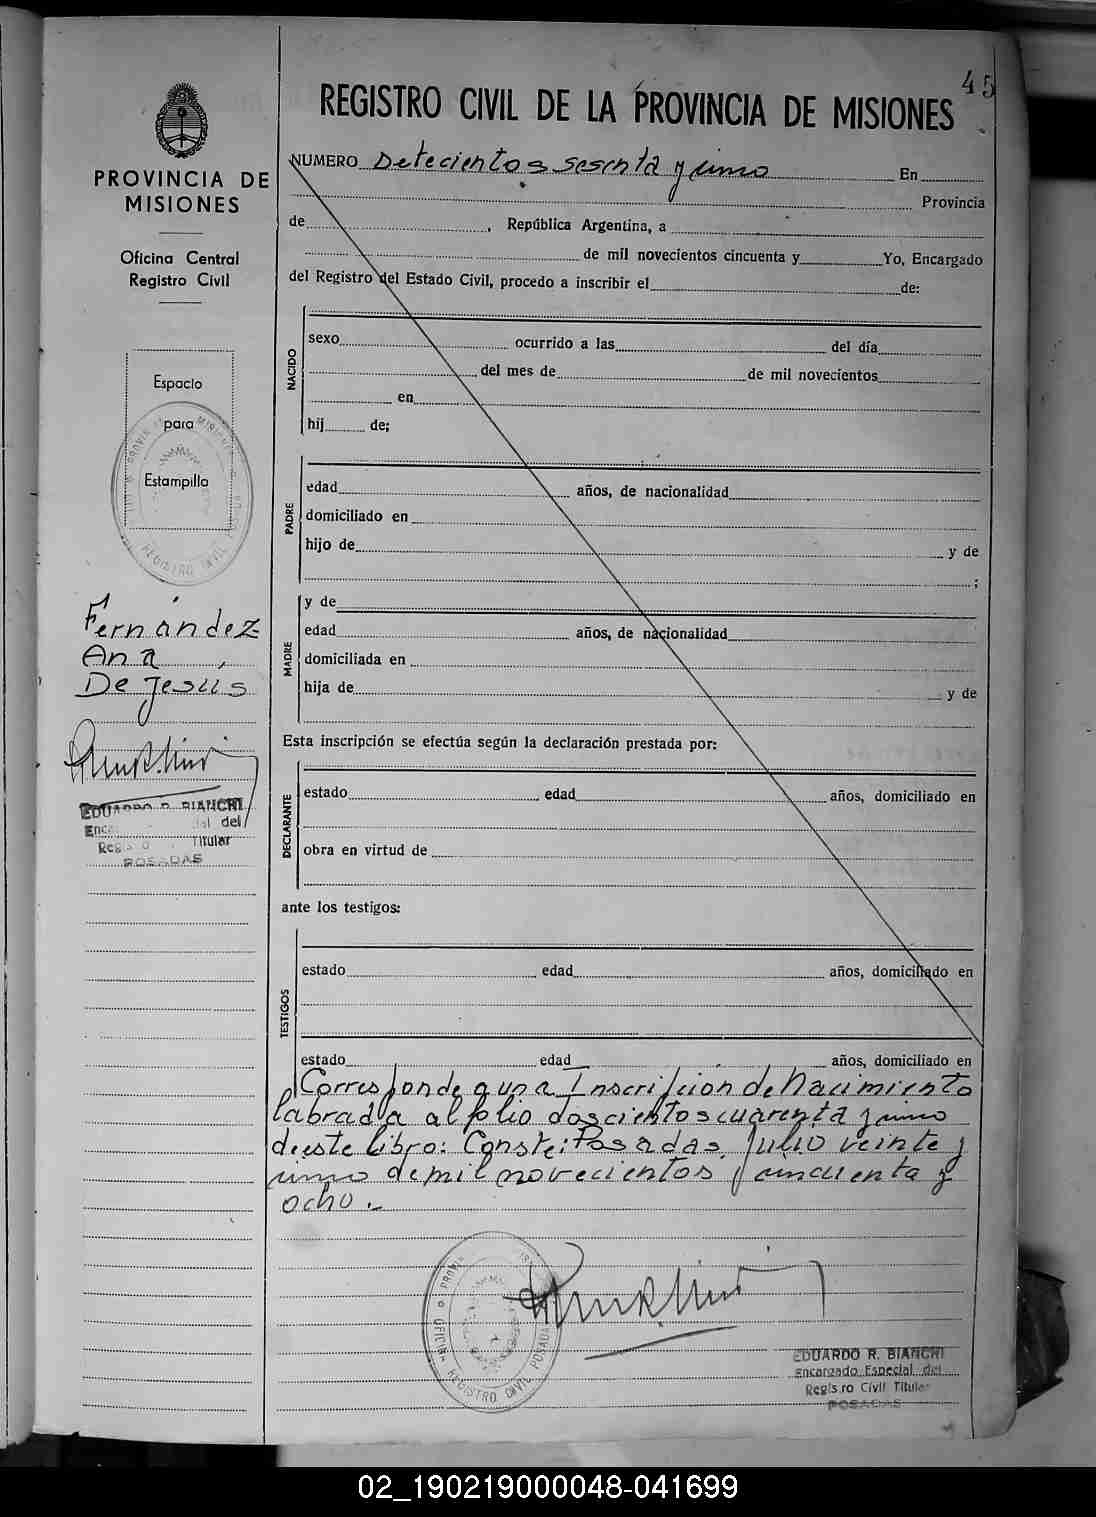 45
REGISTRO CIVIL DE LA PROVINCIA DE MISIONES
PROVINCIA DE
MISIONES
Oficina Central
Registro Civil
Espacio
para
Estampilla
Fernández
Ana
De Jesus
EDUARDO R. BIANCHI
del
Titular
POSADAS
NUMERO Setecientos sesenta y uno En
Provincia
de , República Argentina, a
de mil novecientos cincuenta y Yo, Encargado
del Registro del Estado Civil, procedo a inscribir el de:
NACIDO
sexo ocurrido a las del día
del mes de de mil novecientos
en
hij de;
PADRE
edad años, de nacionalidad
domiciliado en
hijo de y de
;
MADRE
y de
edad años, de nacionalidad
domiciliada en
hija de y de
Esta inscripción se efectúa según la declaración prestada por:
DECLARANTE
estado edad años, domiciliado en
obra en virtud de
ante los testigos:
TESTIGOS
estado edad años, domiciliado en
estado edad años, domiciliado en
Corresponde a una Inscripcion de Nacimiento
labrada al folio doscientos cuarenta y uno
de este libro: Conste: Posadas, Julio veinte y
uno de mil novecientos y cincuenta y
ocho.-
OFICIN REGISTRO CIVIL POSADA
EDUARDO R. BIANCHI
Encargado Especial del
Regis.ro Civil Titular
POSADAS
02_190219000048-041699